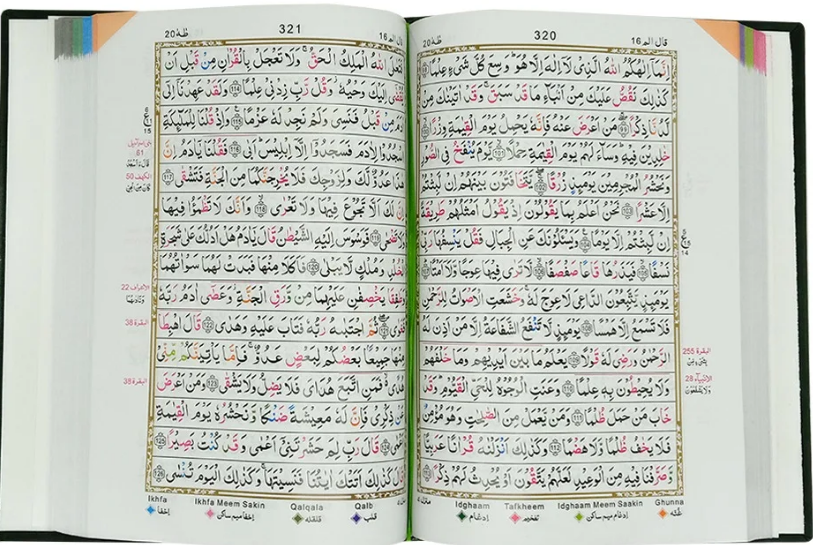 قال الم ١٦ 320 طٰهٰ ٢٠
اِنَّمَاۤ اِلٰهُكُمُ اللّٰهُ الَّذِیْ لَاۤ اِلٰهَ اِلَّا هُوَ ؕ وَسِعَ كُلَّ شَیْءٍ عِلْمًا
كَذٰلِكَ نَقُصُّ عَلَیْكَ مِنْ اَنْۢبَآءِ مَا قَدْ سَبَقَ ۚ وَقَدْ اٰتَیْنٰكَ مِنْ
لَّدُنَّا ذِكْرًا ﴿99﴾ مَنْ اَعْرَضَ عَنْهُ فَاِنَّهٗ یَحْمِلُ یَوْمَ الْقِیٰمَةِ وِزْرًا
خٰلِدِیْنَ فِیْهِ ؕ وَسَآءَ لَهُمْ یَوْمَ الْقِیٰمَةِ حِمْلًا ﴿101﴾ یَّوْمَ یُنْفَخُ فِی الصُّوْرِ
وَنَحْشُرُ الْمُجْرِمِیْنَ یَوْمَىِٕذٍ زُرْقًا ﴿102﴾ یَّتَخَافَتُوْنَ بَیْنَهُمْ اِنْ لَّبِثْتُمْ
اِلَّا عَشْرًا ﴿103﴾ نَحْنُ اَعْلَمُ بِمَا یَقُوْلُوْنَ اِذْ یَقُوْلُ اَمْثَلُهُمْ طَرِیْقَةً
اِنْ لَّبِثْتُمْ اِلَّا یَوْمًا ﴿104﴾ وَیَسْـَٔلُوْنَكَ عَنِ الْجِبَالِ فَقُلْ یَنْسِفُهَا رَبِّیْ
نَسْفًا ﴿105﴾ فَیَذَرُهَا قَاعًا صَفْصَفًا ﴿106﴾ لَّا تَرٰی فِیْهَا عِوَجًا وَّلَاۤ اَمْتًا
یَوْمَىِٕذٍ یَّتَّبِعُوْنَ الدَّاعِیَ لَا عِوَجَ لَهٗ ۚ وَخَشَعَتِ الْاَصْوَاتُ لِلرَّحْمٰنِ
فَلَا تَسْمَعُ اِلَّا هَمْسًا ﴿108﴾ یَوْمَىِٕذٍ لَّا تَنْفَعُ الشَّفَاعَةُ اِلَّا مَنْ اَذِنَ لَهُ
الرَّحْمٰنُ وَرَضِیَ لَهٗ قَوْلًا ﴿109﴾ یَعْلَمُ مَا بَیْنَ اَیْدِیْهِمْ وَمَا خَلْفَهُمْ
وَلَا یُحِیْطُوْنَ بِهٖ عِلْمًا ﴿110﴾ وَعَنَتِ الْوُجُوْهُ لِلْحَیِّ الْقَیُّوْمِ ؕ وَقَدْ
خَابَ مَنْ حَمَلَ ظُلْمًا ﴿111﴾ وَمَنْ یَّعْمَلْ مِنَ الصّٰلِحٰتِ وَهُوَ مُؤْمِنٌ
فَلَا یَخٰفُ ظُلْمًا وَّلَا هَضْمًا ﴿112﴾ وَكَذٰلِكَ اَنْزَلْنٰهُ قُرْاٰنًا عَرَبِیًّا
وَّصَرَّفْنَا فِیْهِ مِنَ الْوَعِیْدِ لَعَلَّهُمْ یَتَّقُوْنَ اَوْ یُحْدِثُ لَهُمْ ذِكْرًا ﴿113﴾
14
البقرة 255
الانبیآء 28
Idghaam Tafkheem Idghaam Meem Saakin Ghunna
ادغام تفخیم ادغام میم ساکن غنّه
قال الم ١٦ 321 طٰهٰ ٢٠
فَتَعٰلَی اللّٰهُ الْمَلِكُ الْحَقُّ ۚ وَلَا تَعْجَلْ بِالْقُرْاٰنِ مِنْ قَبْلِ اَنْ
یُّقْضٰۤی اِلَیْكَ وَحْیُهٗ ؗ وَقُلْ رَّبِّ زِدْنِیْ عِلْمًا ﴿114﴾ وَلَقَدْ عَهِدْنَاۤ اِلٰۤی
اٰدَمَ مِنْ قَبْلُ فَنَسِیَ وَلَمْ نَجِدْ لَهٗ عَزْمًا ﴿115﴾ وَاِذْ قُلْنَا لِلْمَلٰٓىِٕكَةِ
اسْجُدُوْا لِاٰدَمَ فَسَجَدُوْۤا اِلَّاۤ اِبْلِیْسَ ؕ اَبٰی ﴿116﴾ فَقُلْنَا یٰۤاٰدَمُ اِنَّ
هٰذَا عَدُوٌّ لَّكَ وَلِزَوْجِكَ فَلَا یُخْرِجَنَّكُمَا مِنَ الْجَنَّةِ فَتَشْقٰی ﴿117﴾
اِنَّ لَكَ اَلَّا تَجُوْعَ فِیْهَا وَلَا تَعْرٰی ﴿118﴾ وَاَنَّكَ لَا تَظْمَؤُا فِیْهَا
وَلَا تَضْحٰی ﴿119﴾ فَوَسْوَسَ اِلَیْهِ الشَّیْطٰنُ قَالَ یٰۤاٰدَمُ هَلْ اَدُلُّكَ عَلٰی شَجَرَةِ
الْخُلْدِ وَمُلْكٍ لَّا یَبْلٰی ﴿120﴾ فَاَكَلَا مِنْهَا فَبَدَتْ لَهُمَا سَوْاٰتُهُمَا
وَطَفِقَا یَخْصِفٰنِ عَلَیْهِمَا مِنْ وَّرَقِ الْجَنَّةِ ؗ وَعَصٰۤی اٰدَمُ رَبَّهٗ
فَغَوٰی ﴿121﴾ ثُمَّ اجْتَبٰهُ رَبُّهٗ فَتَابَ عَلَیْهِ وَهَدٰی ﴿122﴾ قَالَ اهْبِطَا
مِنْهَا جَمِیْعًۢا بَعْضُكُمْ لِبَعْضٍ عَدُوٌّ ۚ فَاِمَّا یَاْتِیَنَّكُمْ مِّنِّیْ
هُدًی ۙ۬ فَمَنِ اتَّبَعَ هُدَایَ فَلَا یَضِلُّ وَلَا یَشْقٰی ﴿123﴾ وَمَنْ اَعْرَضَ
عَنْ ذِكْرِیْ فَاِنَّ لَهٗ مَعِیْشَةً ضَنْكًا وَّنَحْشُرُهٗ یَوْمَ الْقِیٰمَةِ
اَعْمٰی ﴿124﴾ قَالَ رَبِّ لِمَ حَشَرْتَنِیْۤ اَعْمٰی وَقَدْ كُنْتُ بَصِیْرًا ﴿125﴾
قَالَ كَذٰلِكَ اَتَتْكَ اٰیٰتُنَا فَنَسِیْتَهَا ۚ وَكَذٰلِكَ الْیَوْمَ تُنْسٰی ﴿126﴾
15
بنی اسرآءیل
61
الكهف 50
الاعراف 22
البقرة 38
البقرة 38
Ikhfa Ikhfa Meem Sakin Qalqala Qalb
اخفا اخفا میم ساکن قلقله قلب